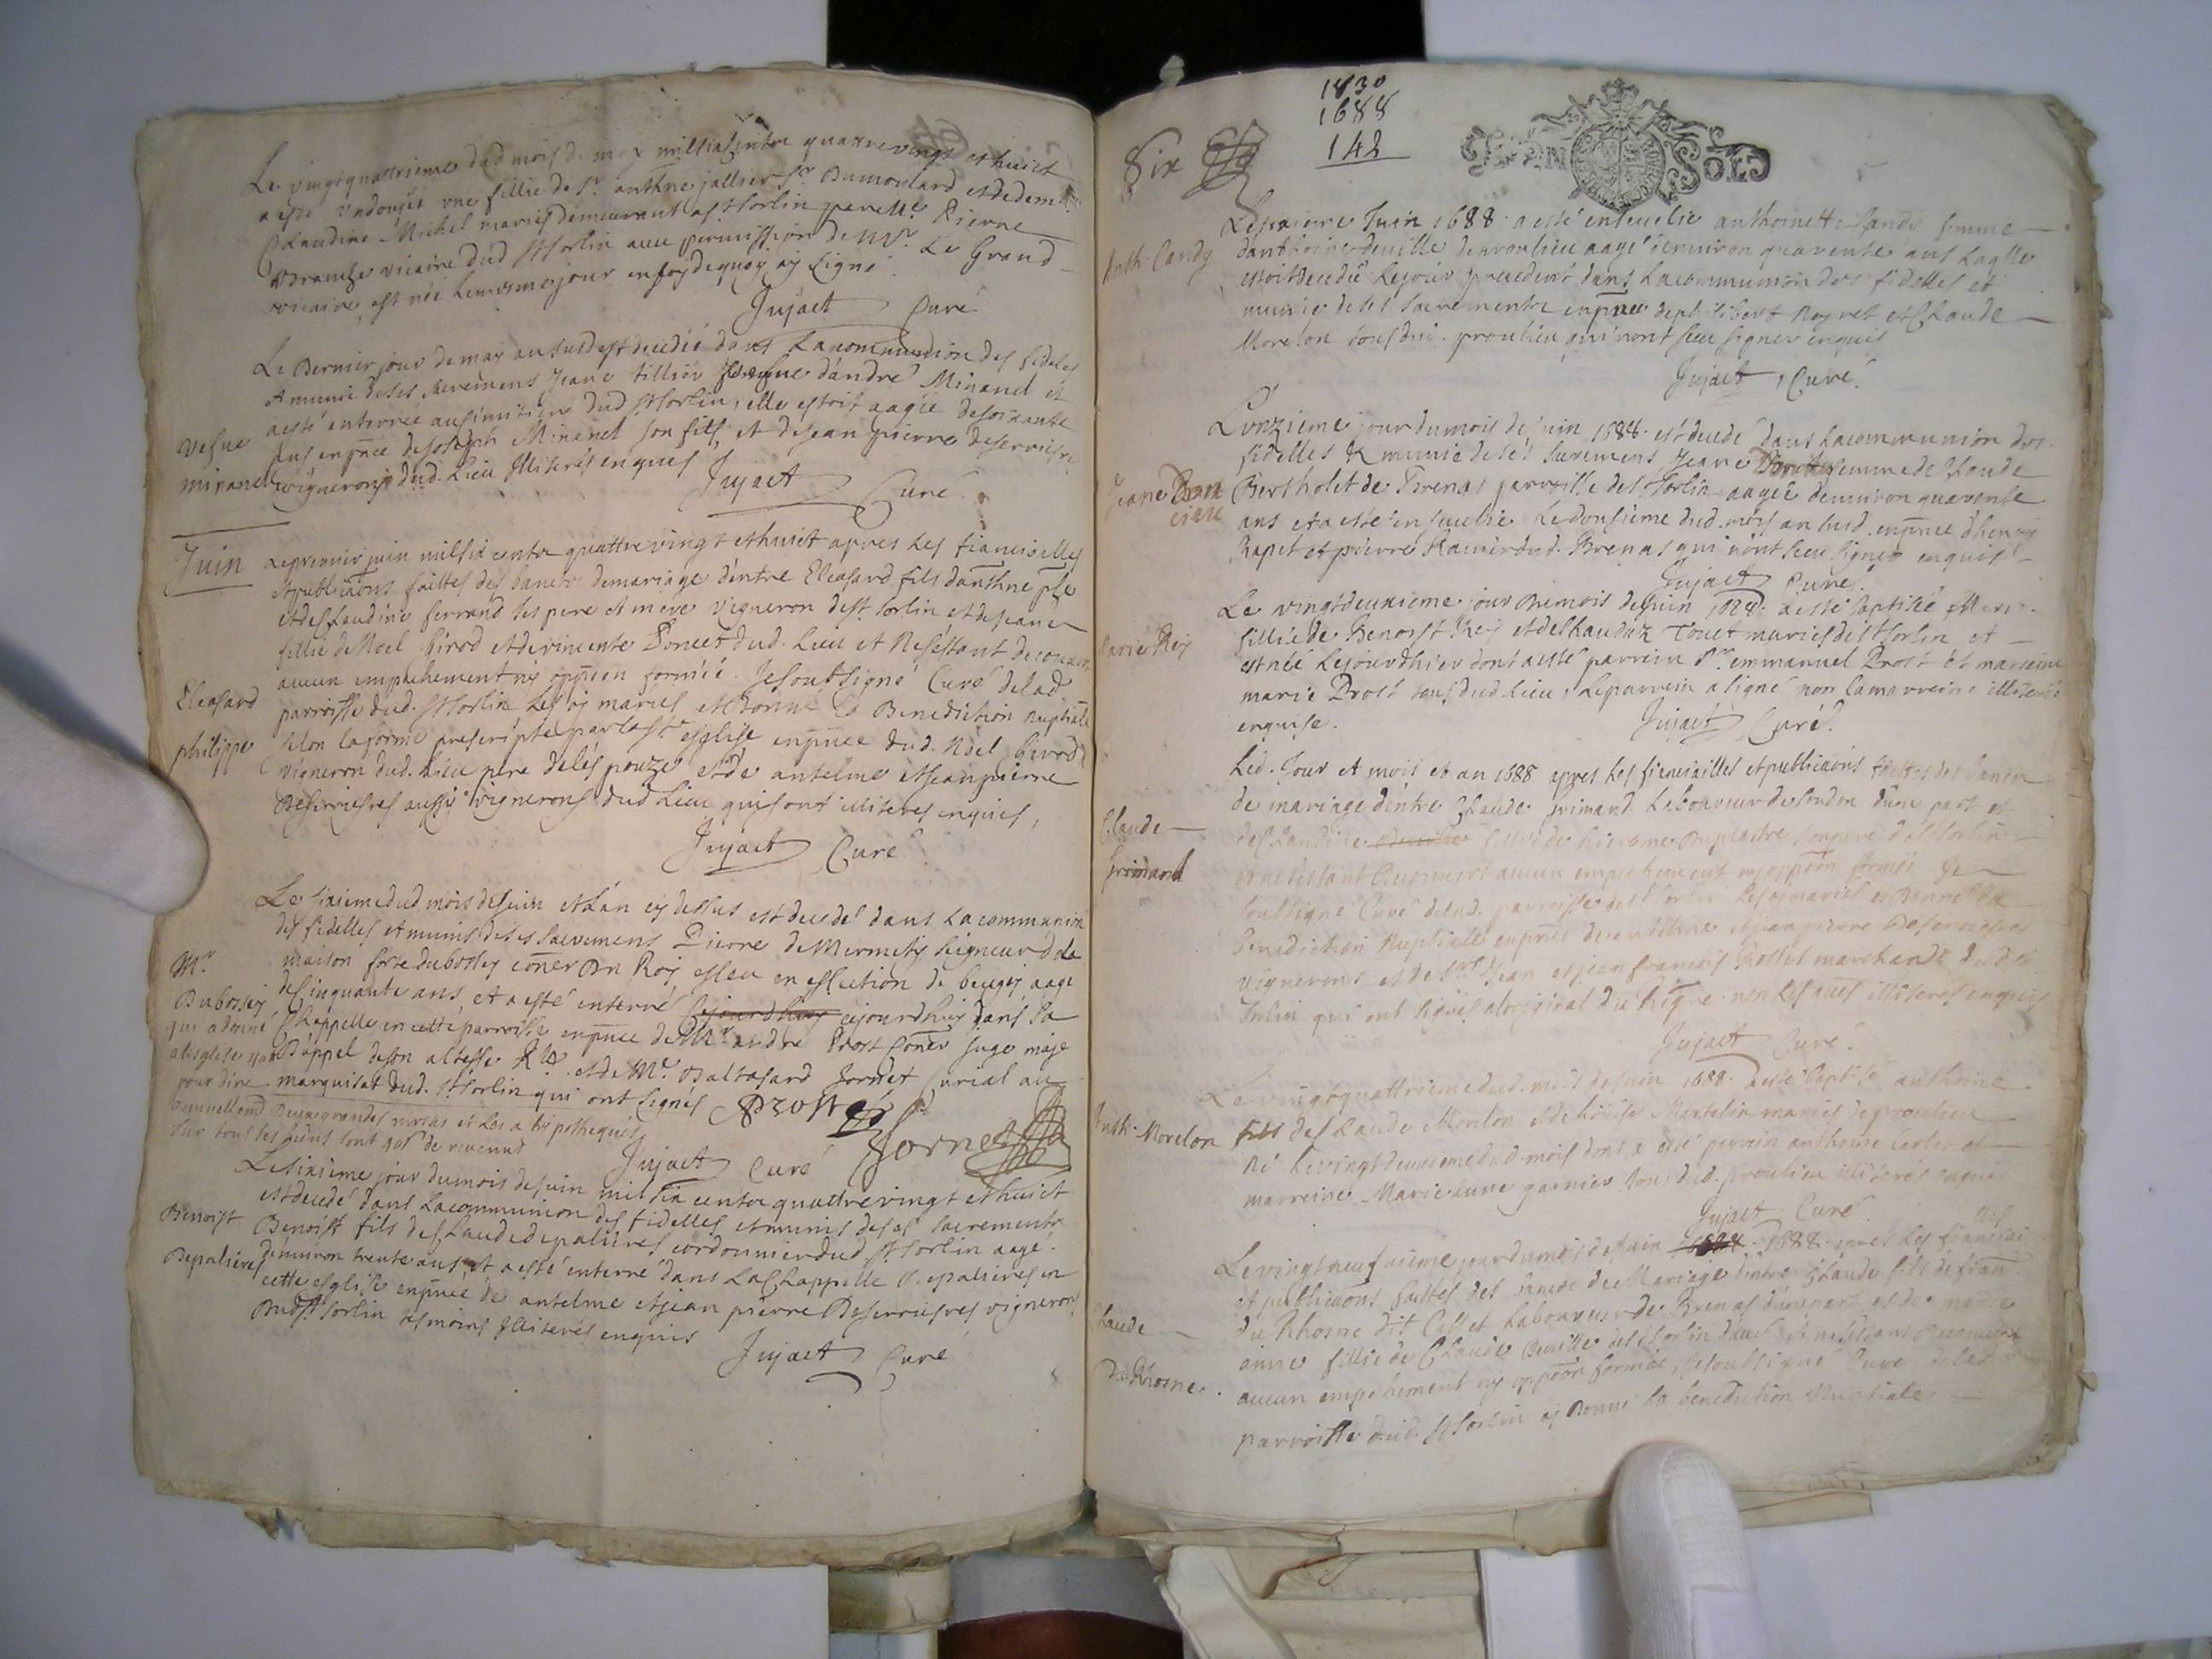 Le vingtquattrieme dud mois de may mil six centz quattrevingt et huict
a esté undoyée une fillie de Sr. anthne jallier Sr. Dumoulard et de demlle
Claudine Michel mariés demeurant a St Sorlin par Mre Pierre
vicaire dud St Sorlin avec permission de Mr. Le Grand
vicaire, est née le mesme jour en foy de quoy ay signé.
Jujact Curé
Le Dernier jour de may an susd est decedée dans La communion des fideles
et munie de ses sacremens Jeane tillier vefue d'andré Minand et
a esté enterrée au simitiere dud St Sorlin, elle estoit aagée de soixante
Vefue
ans en pnce de Joseph Minanel son fils, et de Jean pierre Deserriere
minanel
vignerons dud. Lieu illiterés enquis
Jujact Curé
Juin
Le premier juin mil six centz quattrevingt et huict apres les fianciselles
et publicaons faittes des bancts de mariage d'entre Eleasard fils d'anthne phle
et de Claudine ferrand ses pere et mere vigneron de St Sorlin et de Jeane
fillie de Noel birod et de vincente Poncet dud. Lieu et ne s'estant decouvert
aucun empechement ny oppoon formée. Je soubsigné Curé de lad
Eleasard
parroisse dud. St Sorlin les ay mariés et Donné la Benediction nuptiale
philippe
selon la forme prescripte par la Ste esglise en pnce dud. Noel birod
vigneron dud. Lieu pere de lespouze et de antelme et Jean pierre
Deserrieres aussy vignerons dud Lieu qui sont illiteres enquis,
Jujact Curé
Le sixieme dud mois de Juin et L'an cy dessus est decedé dans La communion
des fidelles et munis de ses sacremens Pierre de Mermety seigneur de la
Mr.
maison forte dubossey coner du Roy esleu en eslection de beugey aagé
Dubossey
de cinquante ans, et a esté enterré cejourdhuy cejourdhuy dans sa
qui a donné
Chappelle en cette parroisse en pnce de Mr. andré Prost Coner juge maje
a lesglise
d'appel de son altesse Rle. et de Me. Baltasard Jornet Curial au
pour dire
marquisat dud. St Sorlin qui ont signés Prost
annuellemt Deux grandes messes et les a hipothequés
sur tous ses biens sont de revenut
Jornet
Jujact Curé
Le sixieme jour du mois de juin mil six centz quattrevingt et huict
est decedé dans La communion des fidelles et munis de ses sacrementz
Benoist
Benoist fils de Claude depalieres cordonnier dud St Sorlin aagé
Depalieres
d'environ trente ans, et a esté enterré dans La Chappelle Depalieres en
cette esglise en pnce de antelme et jean pierre Deserrieres vignerons
Dud St Sorlin tesmoins illiterés enquis
Jujact Curé
1830
1688
142
Six
SOLS
Juin 1688. a esté ensevelie anthoinette Candy femme
Anth. Candy
d'anthoine deville de proulieu aagé denviron quarente ans Laqlle
estoit decedée le jour precedent dans La communion des fidelles et
munie de ses sacrementz en pnce de philibert Reynet et Claude
Morelon tous dud. proulieu qui n'ont sceu signer enquis
Jujact, Curé.
L'onzieme jour du mois de juin 1688. est decedé dans La communion des
fidelles & munie de ses sacremens Jeane femme de Claude
Jeane
Bertholet de Brenas parroisse de St Sorlin aagée d'environ quarente
ans et a esté ensevelie Le dousieme dud. mois an susd. en pnce d'henry
Rapet et pierre dud. Brenas qui n'ont sceu signer enquis
Jujact Curé.
Le vingtdeuxieme jour Du mois de Juin 1688. a esté baptisée Marie
Marie Rey
fillie de Benoist Rey et de Claudaz Touct mariés de St Sorlin et
est née Le jour d'hier dont a esté parrein Sr. emmanuel Prost et marreine
marie Prost tous dud. Lieu, Le parrein a signé non la marreine illiterée
enquise.
Jujact Curé.
Led. Jour et mois et an 1688 apres les fiancialles et publicaons faittes des bancts
de mariage d'entre Claude grimand Laboureur de Londen d'une part et
Claude
de Claudine fillie de hierome Duplastre de St Sorlin
Grimand
et ne s'estant decouvert aucun empechement ny oppoon formée Je
soubsigné Curé de lad. parroisse de St Sorlin les ay mariés et Donné la
benediction Nuptiale en pnce de antelme et Jean pierre Deserrieres
vignerons et de Sr. Jean et jean francois Rosset marchands dud St
Sorlin qui ont signés a loriginal du regre. non les aues illiterés enquis
Jujact Curé.
Le vingtquattrieme dud. mois de juin 1688. a esté baptisé anthoine
Anth. Morelon
fils de Claude Morelon et de Louise Mertelin mariés de proulieu
né le vingtdeuxieme dud mois dont a esté parrein anthoine et
marreine Marie anne garnier tous dud. proulieu illiterés enquis
Jujact Curé
Le vingtneufvieme jour du mois de Juin 1688 apres les fianciai
et publicaons faittes des bancts de Mariage d'entre Claude fils de
Claude
du Rhosne dit Laboureur de Brenas d'une part, et de marie
Du Rhosne.
anne fillie de Claude deville de St Sorlin d'autre et ne s'estant decouvert
aucun empechement ny oppoon formée, Je soubsigné Curé de lad
parroisse dud. St Sorlin ay Donné la benediction Nuptiale